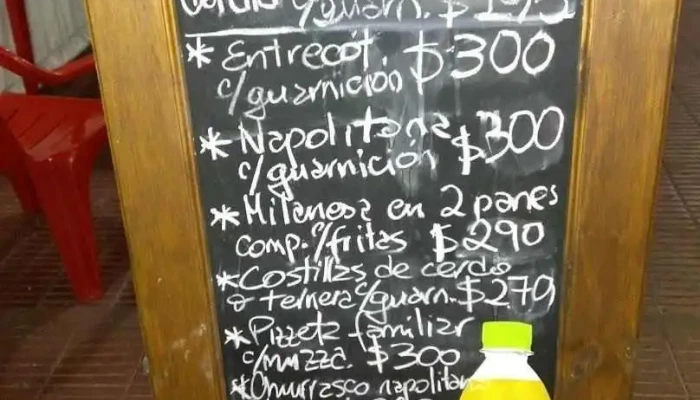 c/guarn. $195
* Entrecot. $300
c/guarnición
* Napolitana $300
c/guarnición
* Milanesa en 2 panes
comp. c/fritas $290
* Costillas de cerdo
o ternera c/guarn. $270
* Pizzeta familiar
c/muzza. $300
* Churrasco napolitano